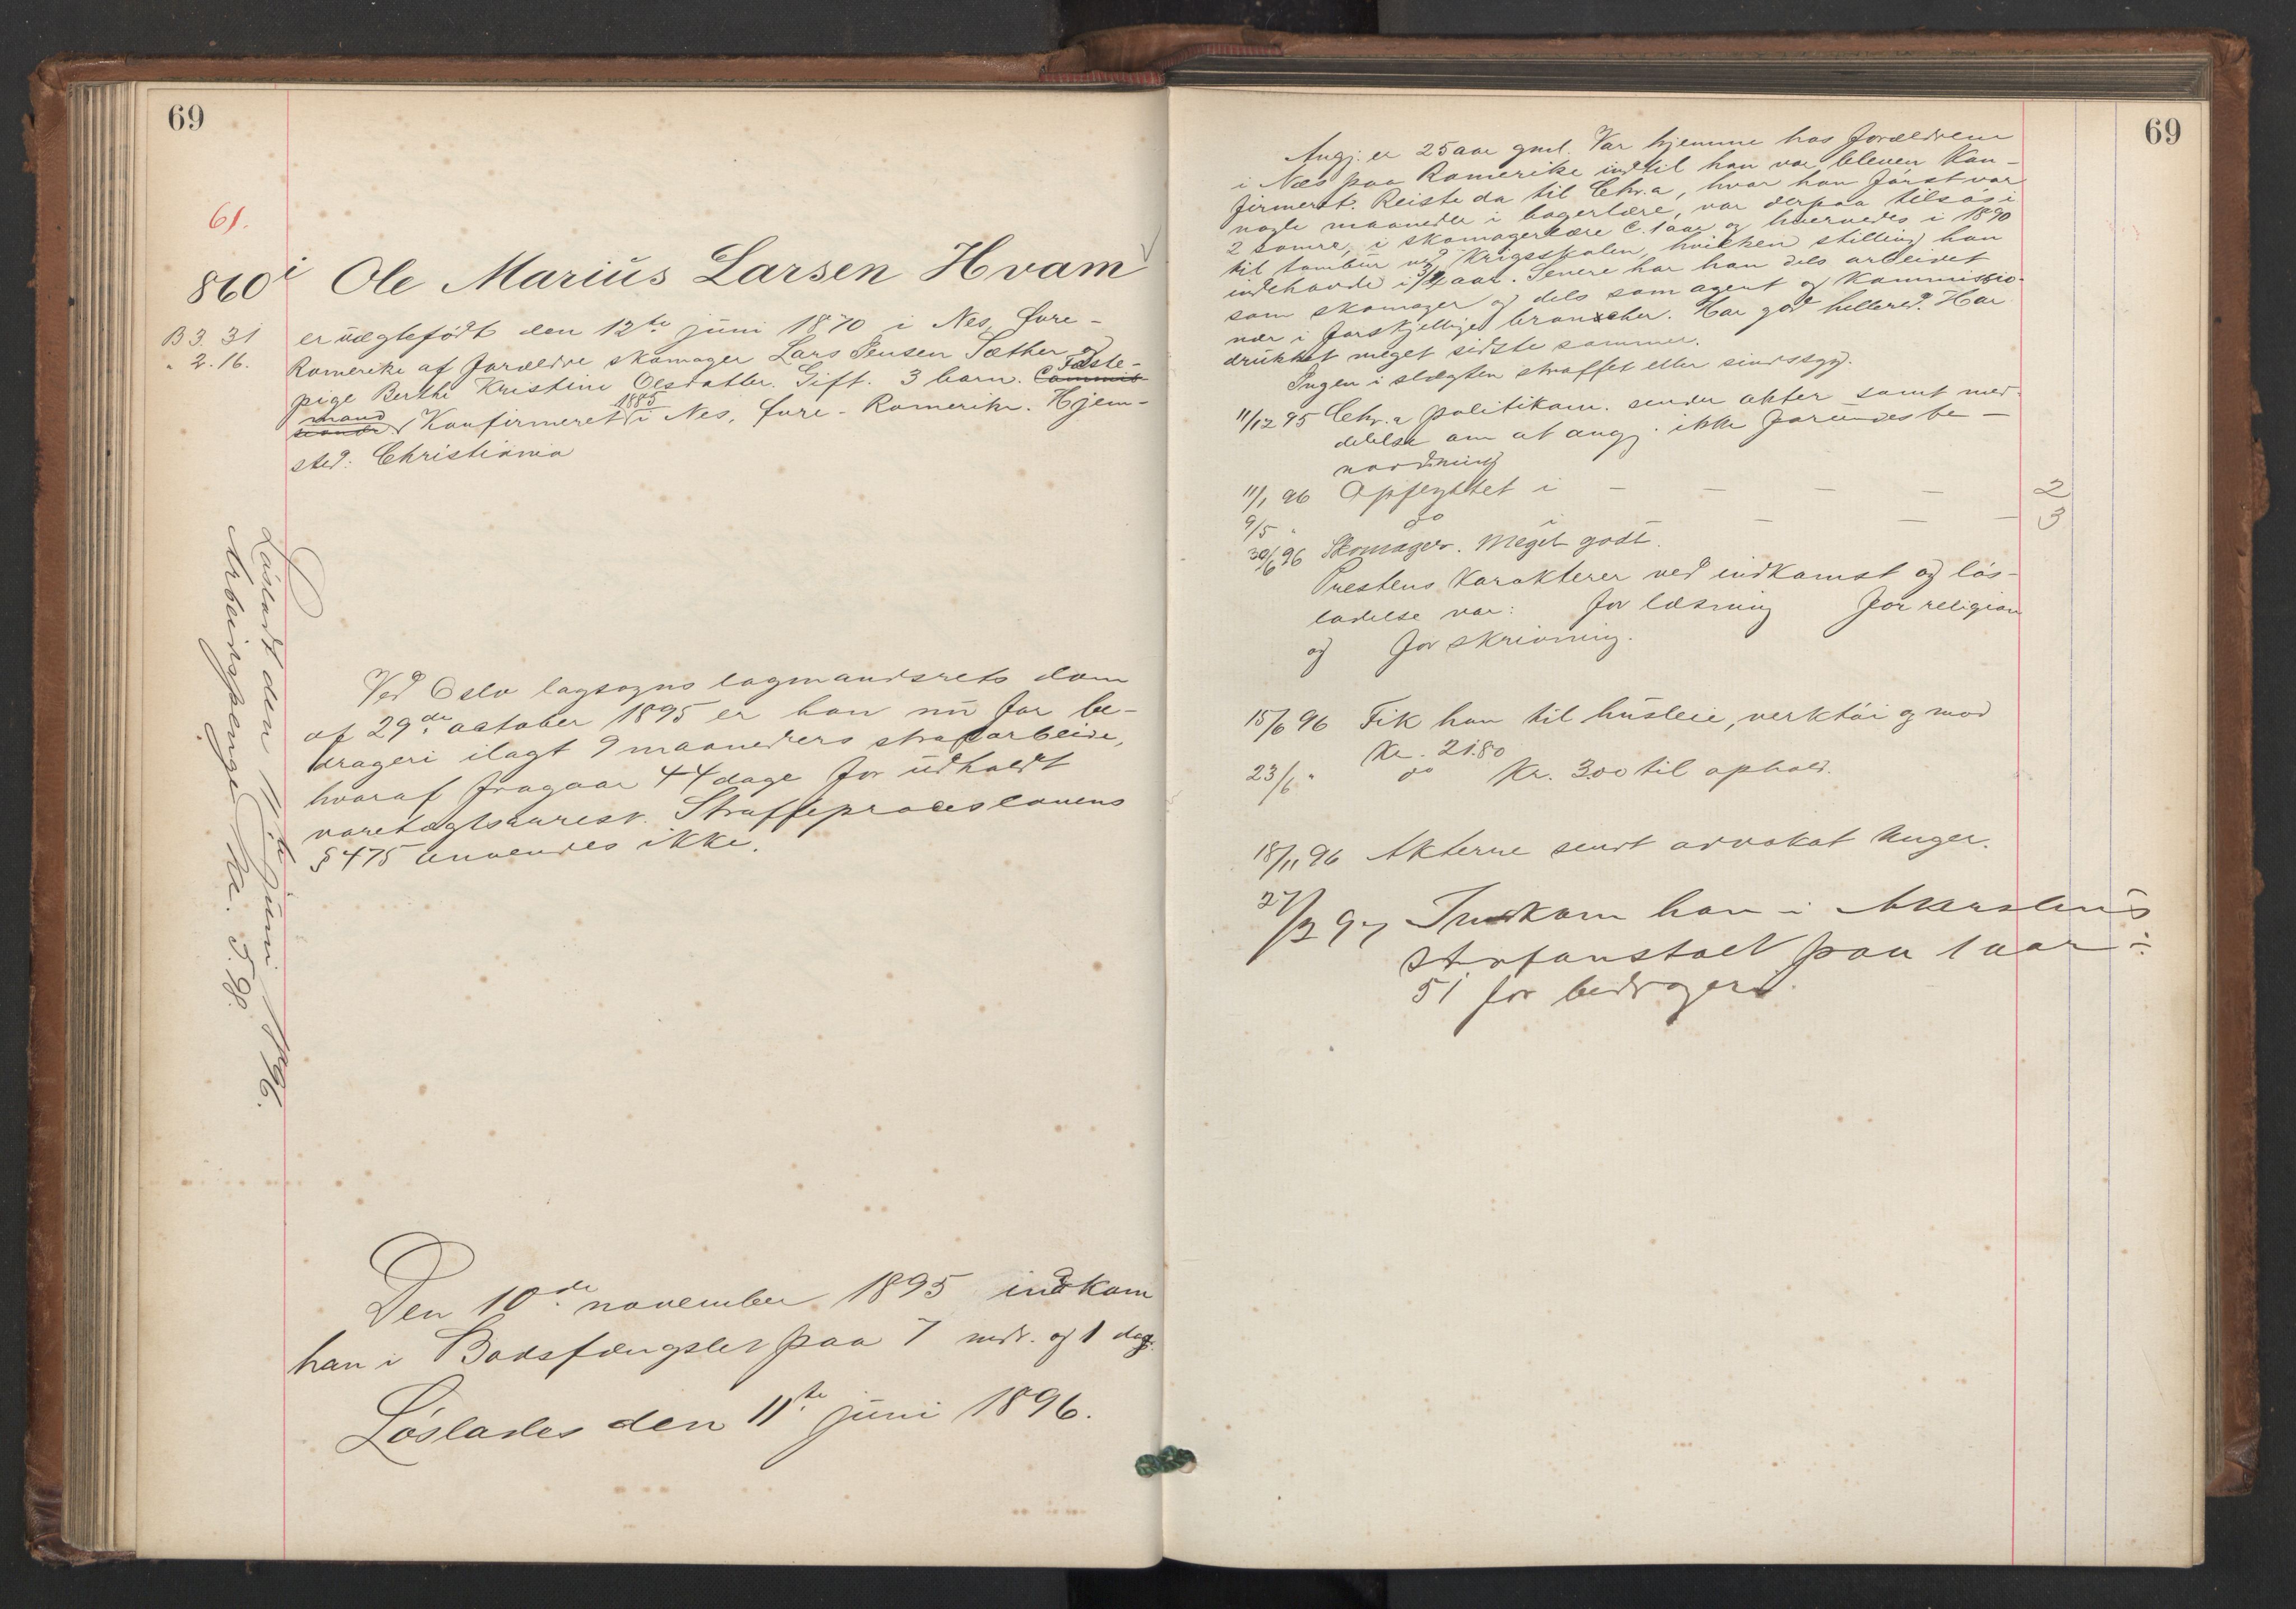 69
61.
860 i Ole Marius Larsen Hvam
B 3. 31
" 2. 16.
er uægtefödt den 12te juni 1870 i Nes, Övre-
Romerike af forældre skomager Lars Jensen Sæther og
pige Berthe Kristine Olsdatter. Gift. 3 barn. Commis- Fæste-
sionær mand Konfirmeret 1885 i Nes, Övre-Romerike. Hjem-
sted: Christiania
Lösladt den 11te juni 1896.
Arbeidspenge Kr. 5.98.
Ved Oslo lagsogns lagmandsrets dom
af 29de october 1895 er han nu for be-
drageri ilagt 9 maaneders strafarbeide,
hvoraf fragaar 44 dage for udholdt
varetægtsarrest. Straffeproceslovens
§ 475 anvendes ikke.
Den 10de november 1895 indkom
han i Bodsfængslet paa 7 mdr. og 1 dag.
Löslades den 11te juni 1896.
69
Angj. er 25 aar gml. Var hjemme hos forældrene
i Næs paa Romerike indtil han var bleven kon-
firmert. Reiste da til Chr.a, hvor han först var
nogle maaneder i bagerlære, var derpaa tilsös i
2 somre, i skomagerlære c. 1 aar og hvervedes i 1890
til tambur ved Krigsskolen, hvilken stilling han
indehavde i 3/4 aar. Senere har han dels arbeidet
som skomager og dels som agent og kommissio-
nær i forskjellige brancher. Har god helbred. Har
drukket meget sidste sommer.
Ingen i slægten straffet eller sindssyg.
11/12 95 Chr.a politikam. sender akter samt med-
delelse om at angj. ikke forundes be-
naadning
11/1 96 Opflyttet i — — — — 2
9/5 " do i — — — 3
30/6 96 Skomager. Meget godt.
Prestens karakterer ved indkomst og lös-
ladelse var: for læsning for religion
og for skrivning.
15/6 96 Fik han til husleie, verktöi og mad
Kr. 21.80
23/6 " do Kr. 3.00 til ophold.
18/11 96 Akterne sendt advokat Unger.
27/2 97 Indkom han i Akershus
strafanstalt paa 1 aar ÷
51 for bedrageri.